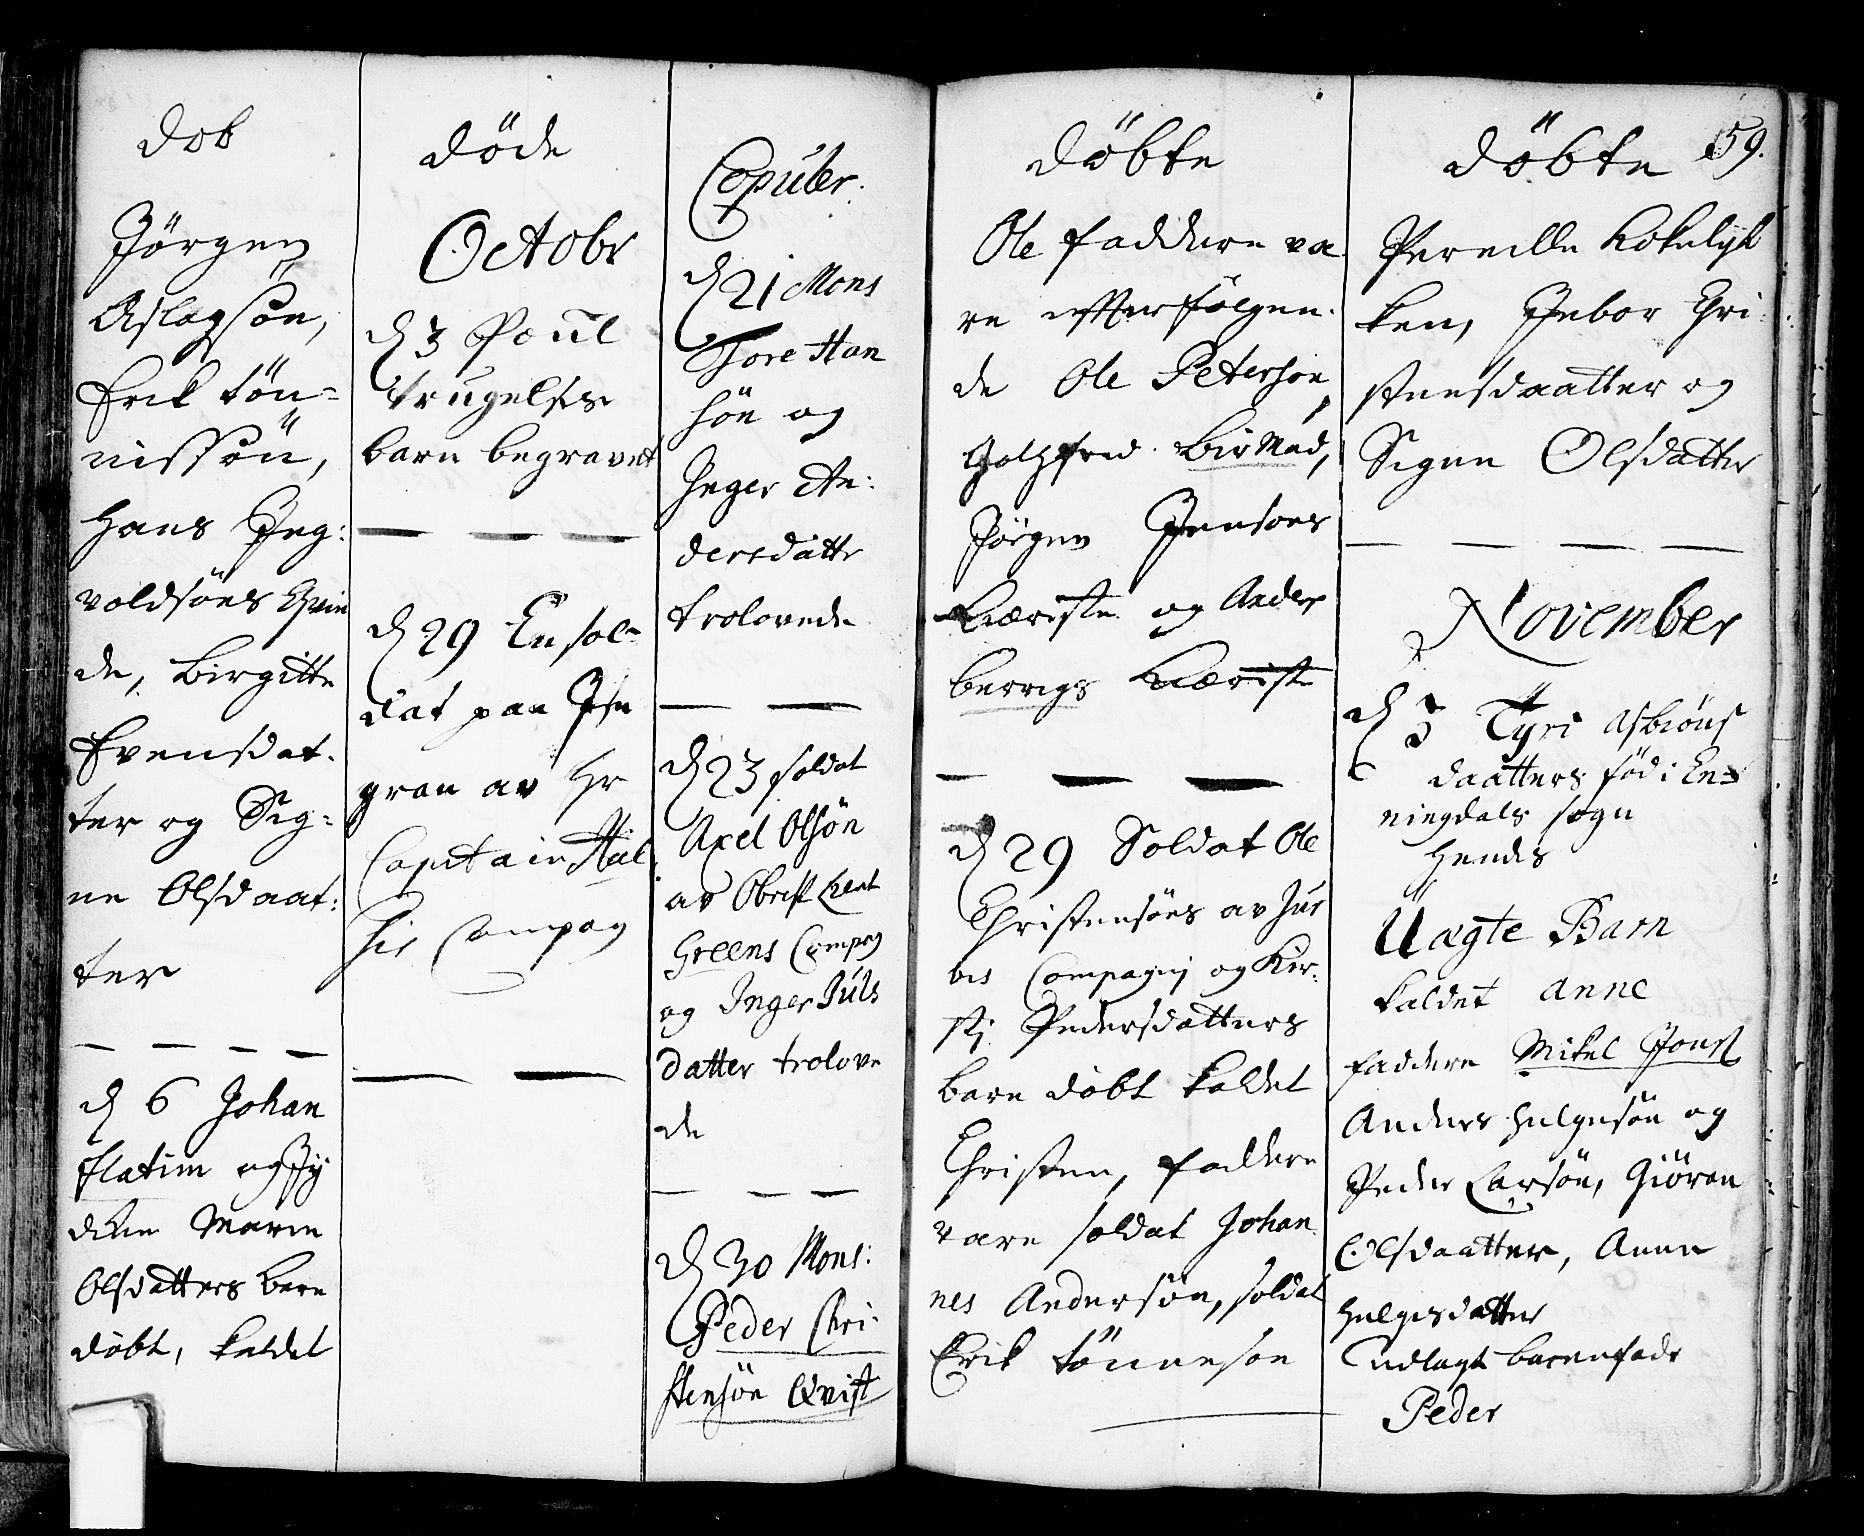 Dob
Jørgen
Aslagsön,
Erik tön=
nissön,
Hans Ing:
voldsöns Qvin
de, Birgitte
Evensdat.
ter og Sig=
ne Olsdaat:
ter
d 6 Johan
flatim og
Marie
Olsdatters barn
döbt, kaldet
Döde
Octobr
d 3 Poul
trugelsens
barn begravet
d 29 En sol-
dat paa
gran av Hr
Capitain
Compag
Copuler.
d 21 Mons
Tore Han
sön og
Inger An:
dersdatter
trolovede
d 23 soldat
Axel Olsön
av Obrist Lieut
Greens Compag
og Inger Juls
datter trolove
de
d 30 Mons:
Peder Chri-
stensön Qvist
Döbte
Ole faddere va
re efterfölgen:
de Ole Peterson,
Birk Mad,
Jörgen Jensens
Kæriste og Anders
berrigs Kæriste
d 29 Soldat Ole
Christensöns av Jur
bis Compagnj og Kir:
stj Pedersdatters
barn döbt kaldet
Christen, faddere
vare soldat Johan
nes Andersön, soldat
Erik tönneson
Döbte 59.
Pernille Kokelyk
ken, Inbor Chri
stensdaatter og
Signe Olsdatter
November
d 3 Tyri Asbiöns
daatters föd i En=
ningdals sogn
Hendes
Uægte Barn
kaldet Anne
faddere Mikel Jons
Anders Helgesön og
Peder Larsön, Giöran
Olsdaatter, Anne
Helgesdatter
udlagt barnefadr
Peder